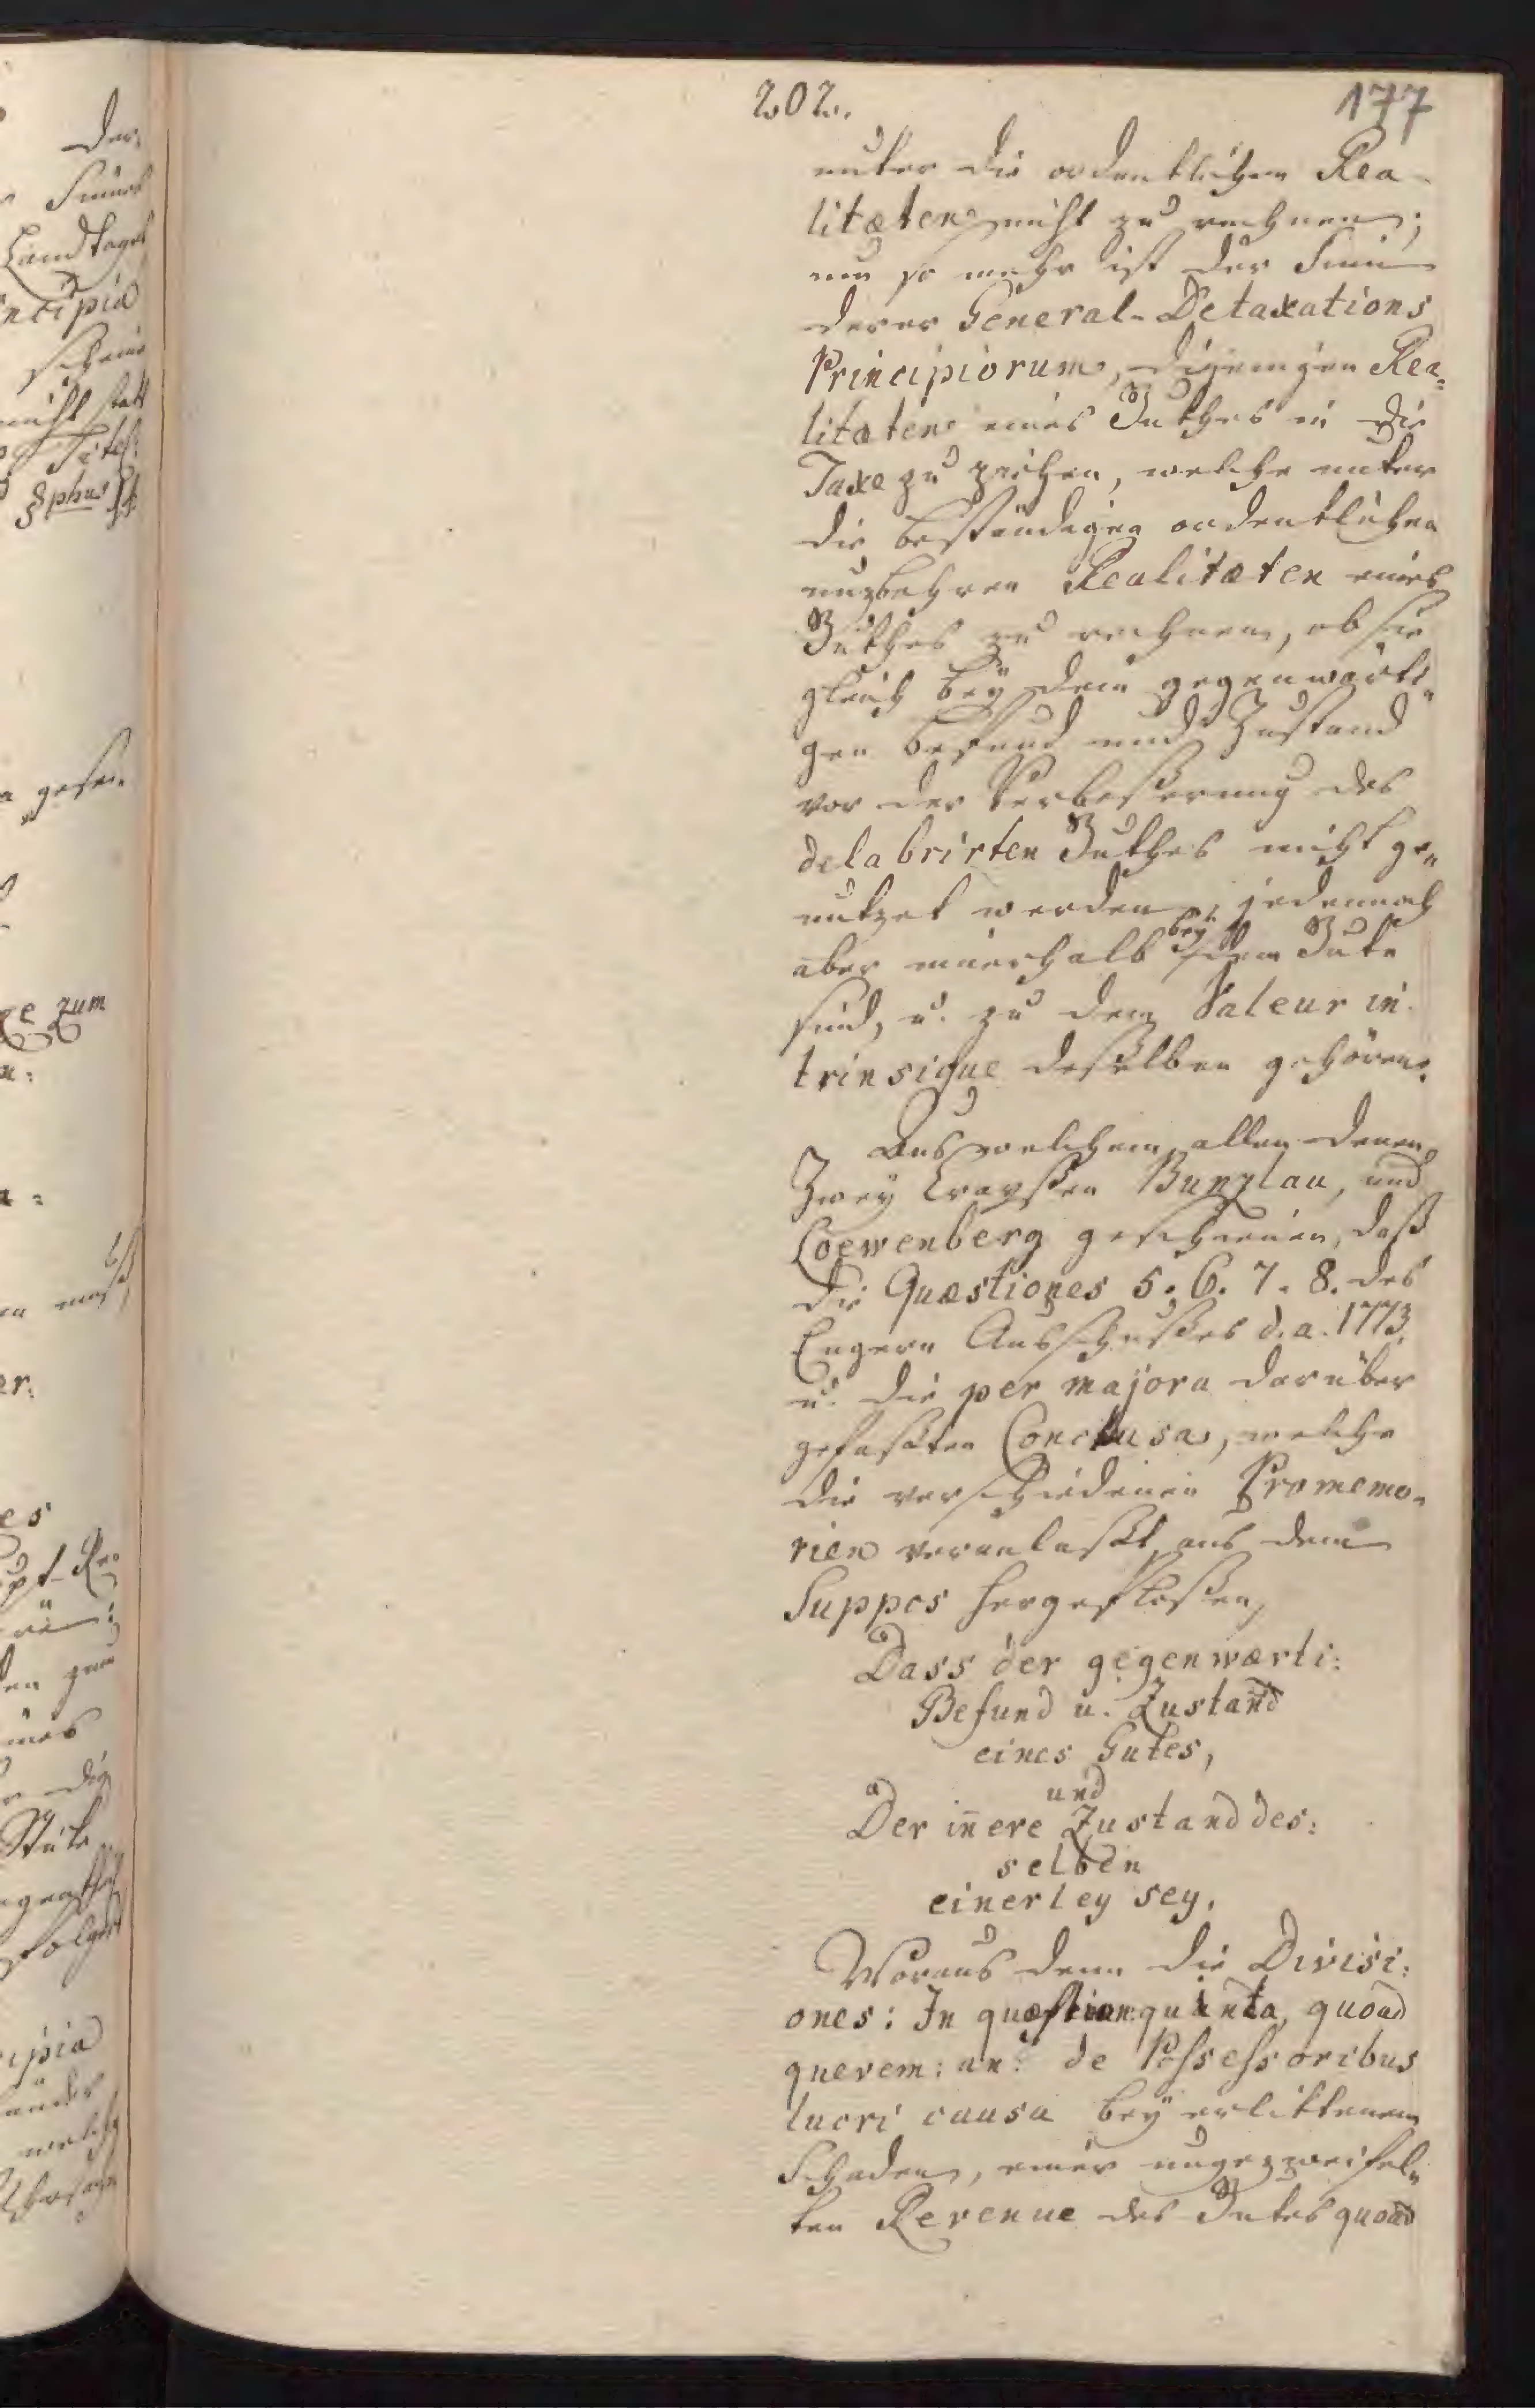 202. 177
unter die ordentlichen Rea-
litæten nicht zu rechnen;
um so mehr ist der Sinn
derer General-Detaxations
Principiorum, diejenigen Rea=
litæten eines Guthes in die
Taxe zu ziehen, welche unter
die beständigen ordentlichen
nuzbahren Realitæten eines
Guthes zu rechnen, ob sie
gleich bey dem gegenwärti"
gen Befund und Zustand
vor der Verbeßerung des
delabrirten Guthes nicht ge"
nutzet werden, jedennoch
aber innerhalb bey dem Gute
sind, u. zu dem Valeur in
trinsique deßelben gehören.
Aus welchem allen denen
Zwey Crayßen Bunzlau, und
Loewenberg geschienen, daß
die Quæstiones 5. 6. 7. 8. des
Engern Ausschußes d. a. 1773.
u. die per majora darüber
gefaßten Conclusa, welche
die verschiedenen Promemo-
rien veranlaßt, aus dem
Suppos hergefloßen,
Dass der gegenwærti:
Befund u. Zustand
eines Gutes,
und
Der iñere Zustand des:
selben
einerley sey.
Woraus denn die Divisi:
ones: In quæstion: quinta, quoad
querem: an: de Possessoribus
lucri causa bey erlittenem
Schaden, einer ungezweifel"
ten Revenue des Gutes quoad
der
Sinnes
Landtages
ncipia
scheine
nicht statt
Titel:
§phus
gesei-
xe zum
n:
a:
en muß
er.
es
upt-Re
rä:
en zum
ines
die
Stüke
folgert
cipia
änder
welche